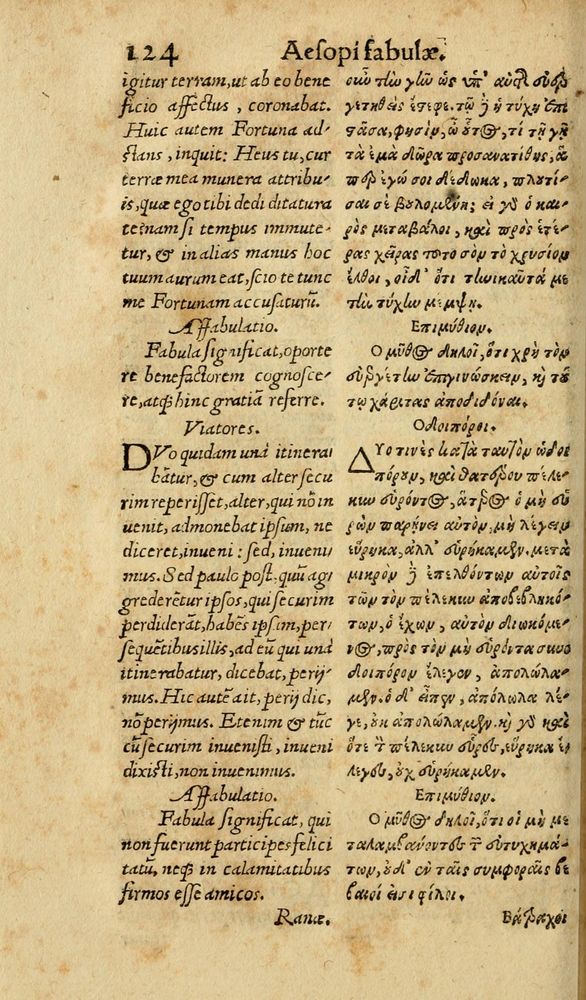 124 Aesopi fabulæ.
igitur terram, ut ab eo bene
ficio affectus, coronabat.
Huic autem Fortuna ad-
stans, inquit: Heus tu, cur
terræ mea munera attribu-
is, quæ ego tibi dedi ditatura
te? nam si tempus immute-
tur, & in alias manus hoc
tuum aurum eat, scio te tunc
me Fortunam accusaturũ.
Affabulatio.
Fabula significat, oporte
re benefactorem cognosce-
re, atq; hinc gratiã referre.
Viatores.
DVo quidam unà itinera
bãtur, & cum alter secu
rim reperisset, alter, qui nõ in
uenit, admonebat ipsum, ne
diceret, inueni: sed, inueni
mus. Sed paulo pòst, quũ ag
grederẽtur ipsos, qui securim
perdiderãt, habẽs ipsam, per
sequẽtibus illis, ad eũ qui unà
itinerabatur, dicebat, perij
mus. Hic autẽ ait, perij dic,
nõ perijmus. Etenim & tũc
cũ securim inuenisti, inueni
dixisti, non inuenimus.
Affabulatio.
Fabula significat, qui
non fuerunt participes felici
tatũ, neq; in calamitatibus
firmos esse amicos.
Ranæ.
οιω τὴν γῆν ὡς ὑπ' αὐτῆς εὐερ
γετηθεὶς ἔστεφε. τῷ δὲ ἡ τύχη ἐπι
στᾶσα, φησὶν, ὦ οὗτος, τί τῇ γῇ
τὰ ἐμὰ δῶρα προσανατίθης, ἅ
περ ἐγώ σοι δέδωκα, πλουτί-
σαι σε βουλομένη; εἰ γὰρ ὁ και-
ρὸς μεταβάλοι, καὶ πρὸς ἑτέ-
ρας χεῖρας τοῦτο σου τὸ χρυσίον
ἔλθοι, οἶδ' ὅτι τηνικαῦτά με
τὴν τύχην μέμψῃ.
Επιμύθιον.
Ο μῦθος δηλοῖ, ὅτι χρὴ τὸν
εὐεργέτην ἐπιγινώσκειν, καὶ τού
τῳ χάριτας ἀποδιδόναι.
Οδοιπόροι.
ΔΥο τινὲς κατὰ ταυτὸν ὡδοι
πόρουν, καὶ θατέρου πέλε-
κυν εὑρόντος, ἅτερος ὁ μὴ εὑ
ρὼν παρῄνει αὐτὸν, μὴ λέγειν
εὕρηκα, ἀλλ' εὑρήκαμεν. μετὰ
μικρὸν δὲ ἐπελθόντων αὐτοῖς
τῶν τὸν πέλεκυν ἀποβεβληκό-
των, ὁ ἔχων, αὐτὸν διωκόμε-
νος, πρὸς τὸν μὴ εὑρόντα συνο
δοιπόρον ἔλεγεν, ἀπολώλα-
μεν. ὁ δ' εἶπεν, ἀπόλωλα λέ-
γε, οὐκ ἀπολώλαμεν. καὶ γὰρ καὶ
ὅτε τὸν πέλεκυν εὗρες, εὕρηκα ἔ
λεγες, οὐχ εὑρήκαμεν.
Επιμύθιον.
Ο μῦθος δηλοῖ, ὅτι οἱ μὴ με
ταλαμβάνοντες τῶν εὐτυχημά-
των, οὐδ' ἐν ταῖς συμφοραῖς βέ
βαιοί εἰσι φίλοι.
Βάτραχοι